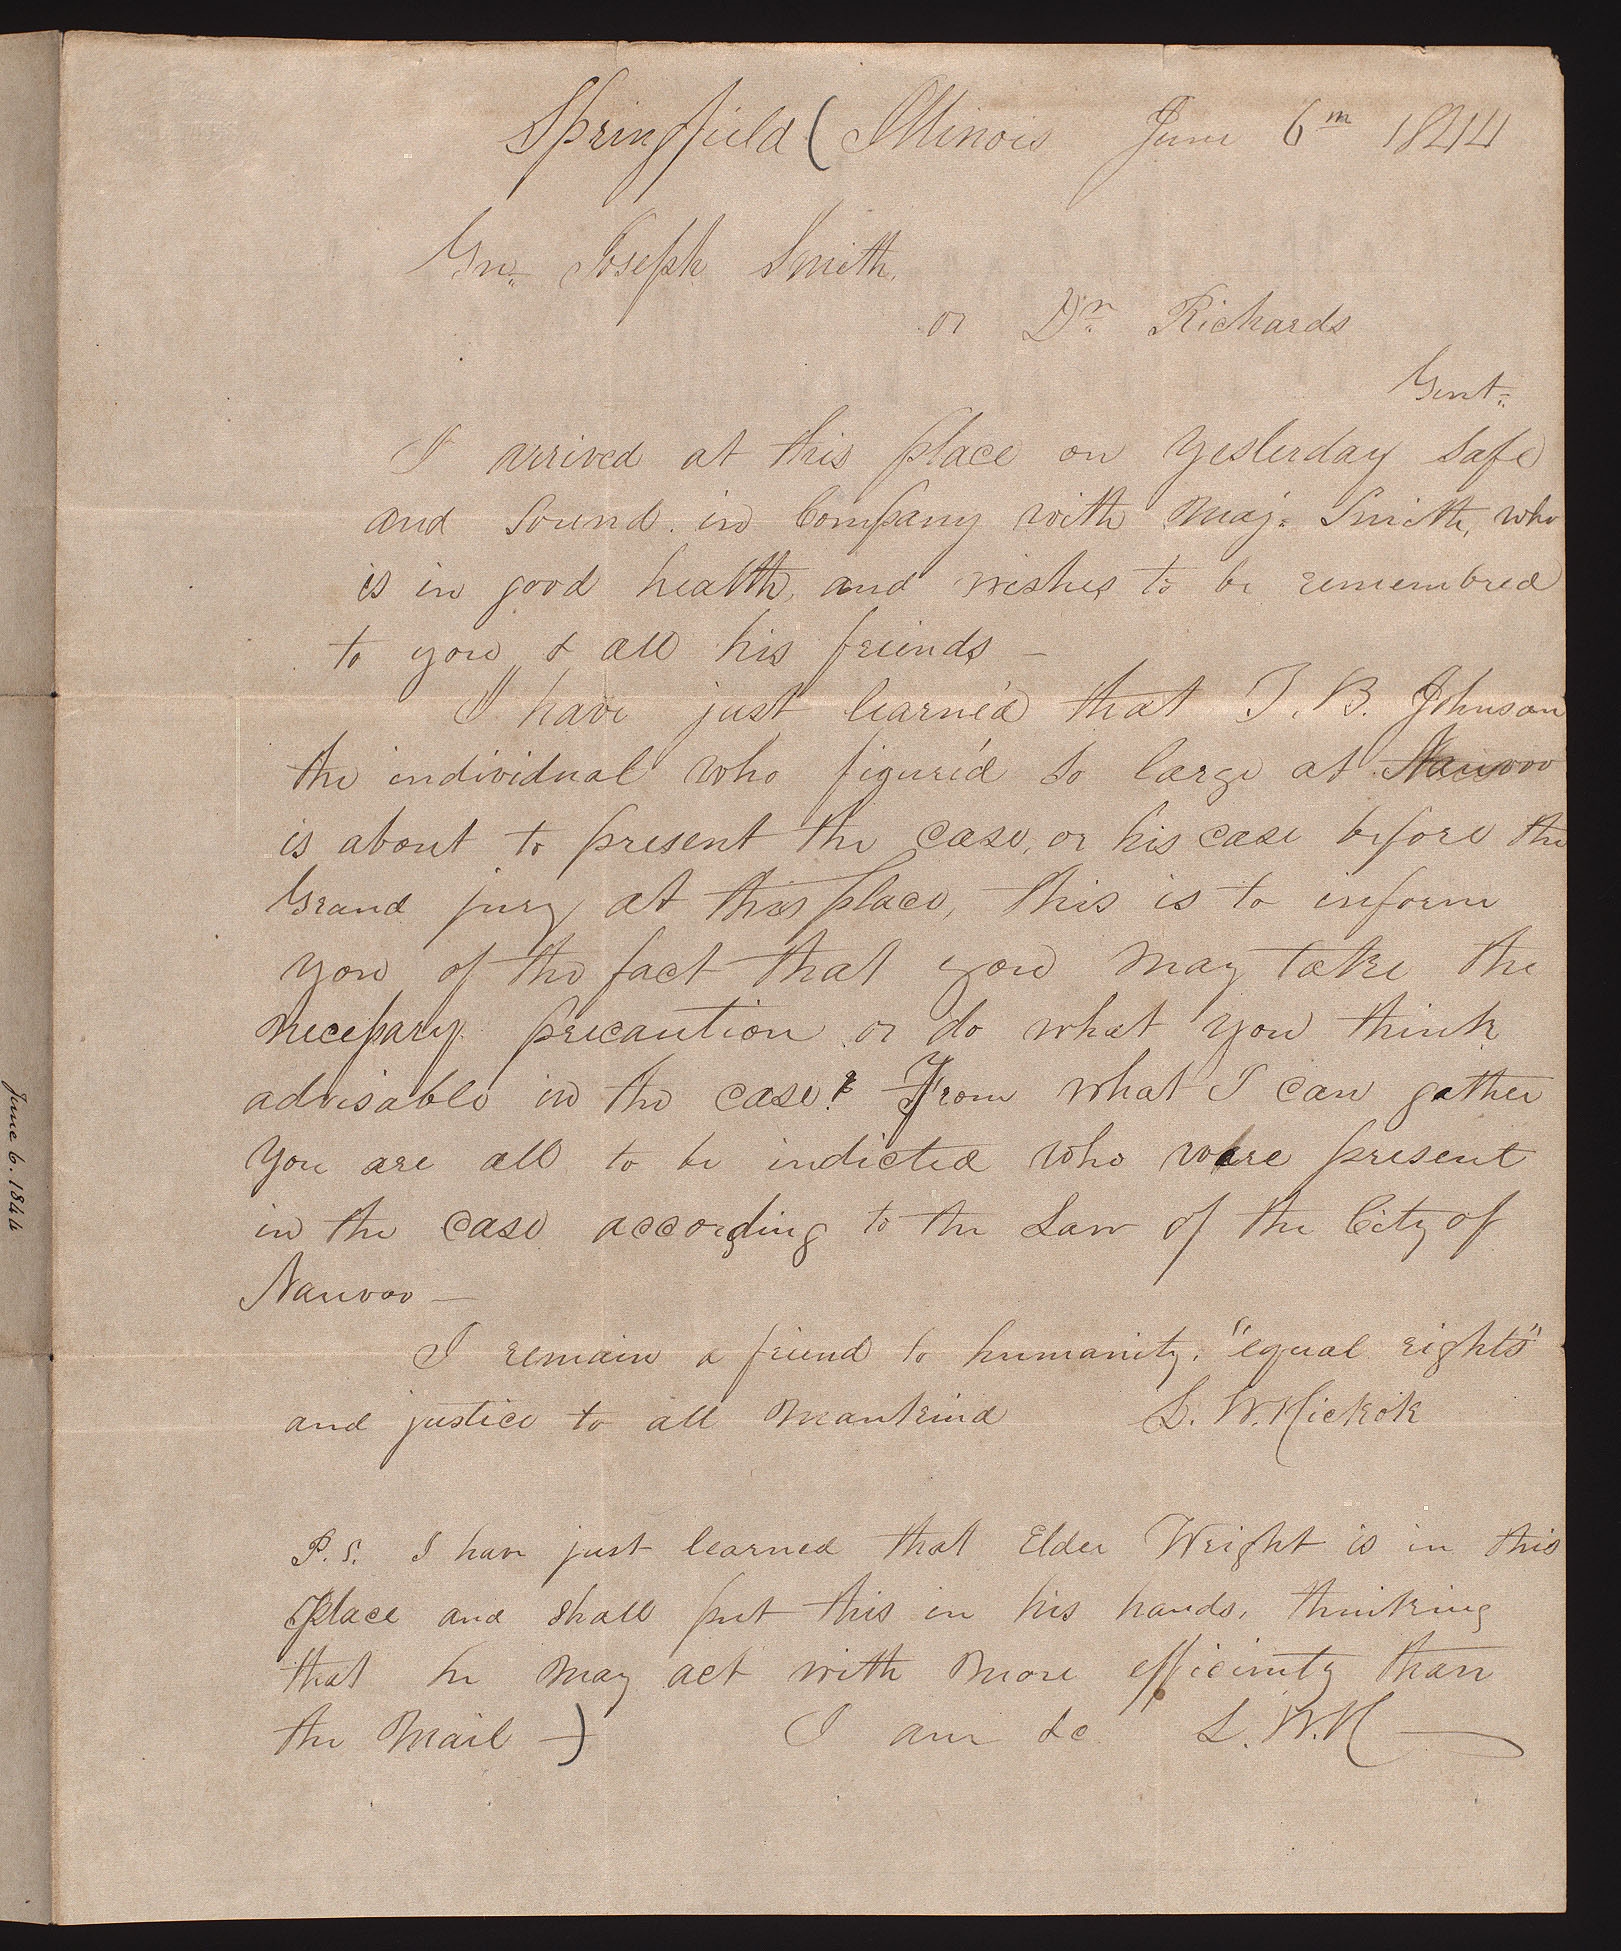 Springfield (Illinois June 6th 1844
Gn. Joseph Smith,
or Dr. Richards
Gent.
I arrived at this place on yesterday safe
and sound in Company with Maj. Smith, who
is in good health, and wishes to be remembred
to you & all his friends —
I have just learn'd that T. B. Johnson
the individual who figure'd so large at Nauvoo
is about to present the case, or his case before the
Grand jury at this place, this is to inform
you of the fact that you may take the
necessary precaution or do what you think
advisable in the case. From what I can gather
you are all to be indicted who were present
in the case according to the Law of the City of
Nauvoo —
I remain a friend to humanity. "equal rights"
and justice to all mankind L. W. Hickok
P.S. I have just learned that Elder Wright is in this
place and shall put this in his hands, thinking
that he may act with more efficiency than
the Mail —) I am &c L. W. H
June 6. 1844